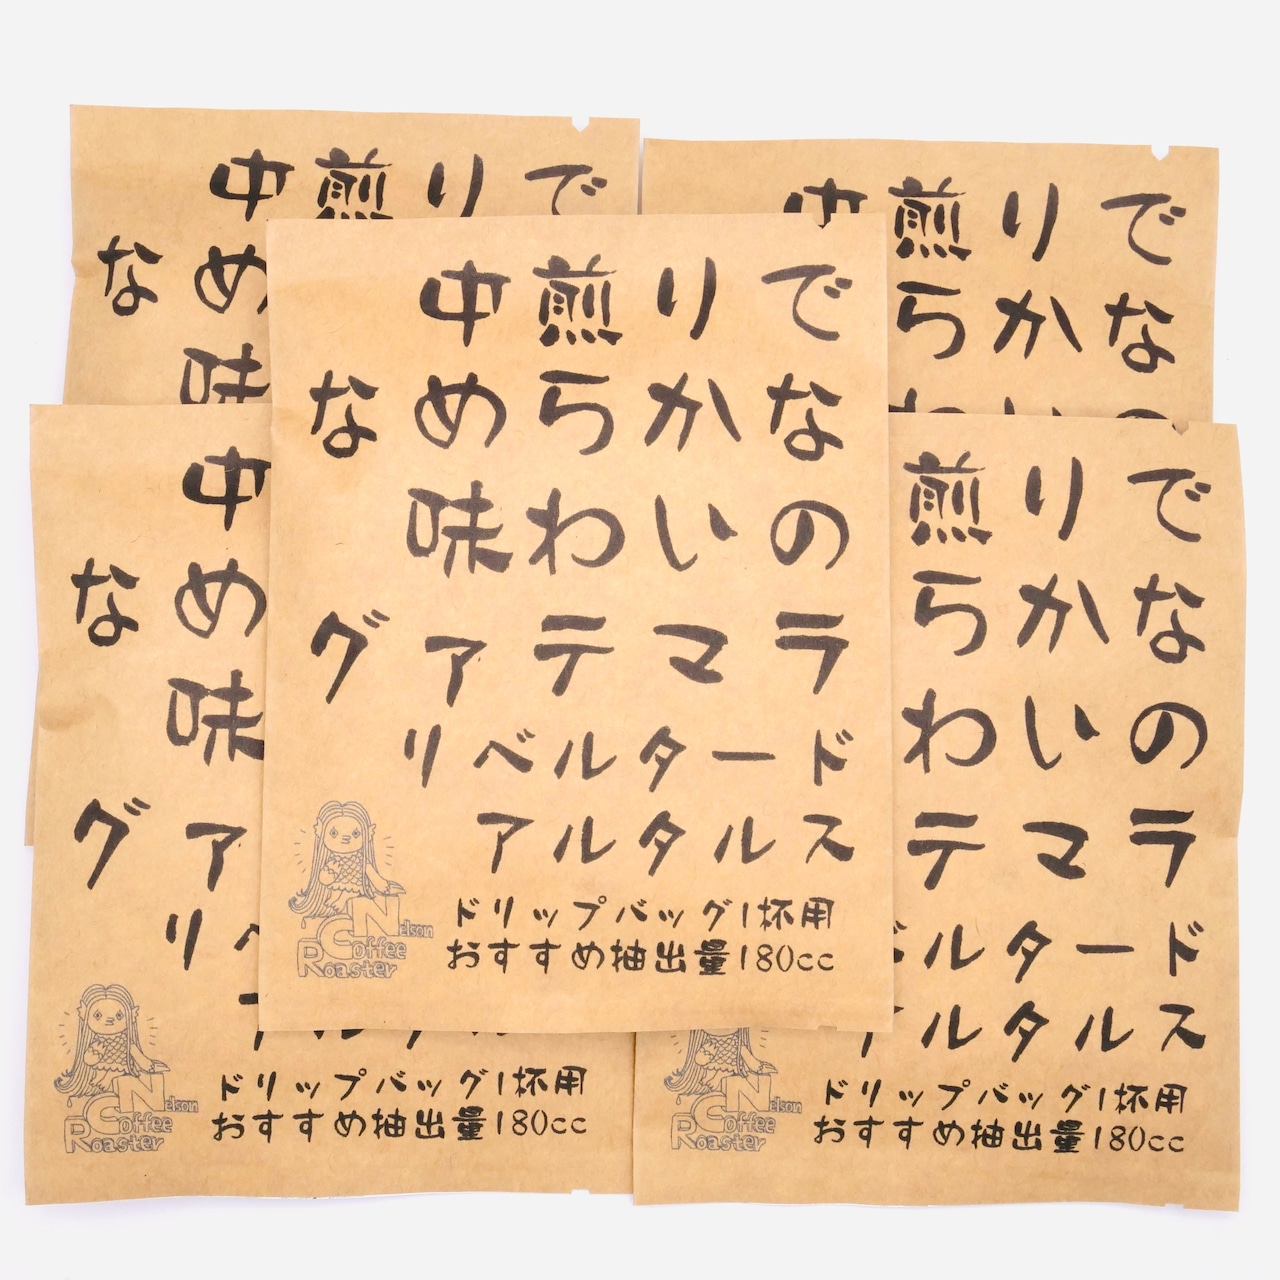 中煎りで
なめ
味
中煎りで
らかな
中煎りで
なめらかな
味わいの
グァテマラ
リベルタード
アルタルス
ドリップバッグ1杯用
おすすめ抽出量180cc
Nelson
Coffee
Roaster
中
なめ
味
グァ
リ
ドリップバッグ1杯用
おすすめ抽出量180cc
Nelson
Coffee
Roaster
煎りで
らかな
わいの
テマラ
ルタード
アルタルス
ドリップバッグ1杯用
おすすめ抽出量180cc
Nelson
Coffee
Roaster